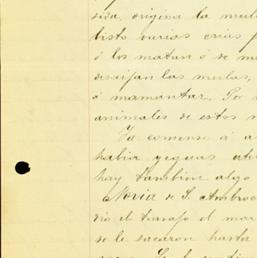 seda, origina la mul
listo varias crias p
ó los matan ó de m
desaijan las mulas,
á mamantar. Por
animales de estos
Ya comense á a
habia yeguas ate
hay tambien algo
Noria de S. Ambro
vió el trabajo el mar
se le sacaron hasta